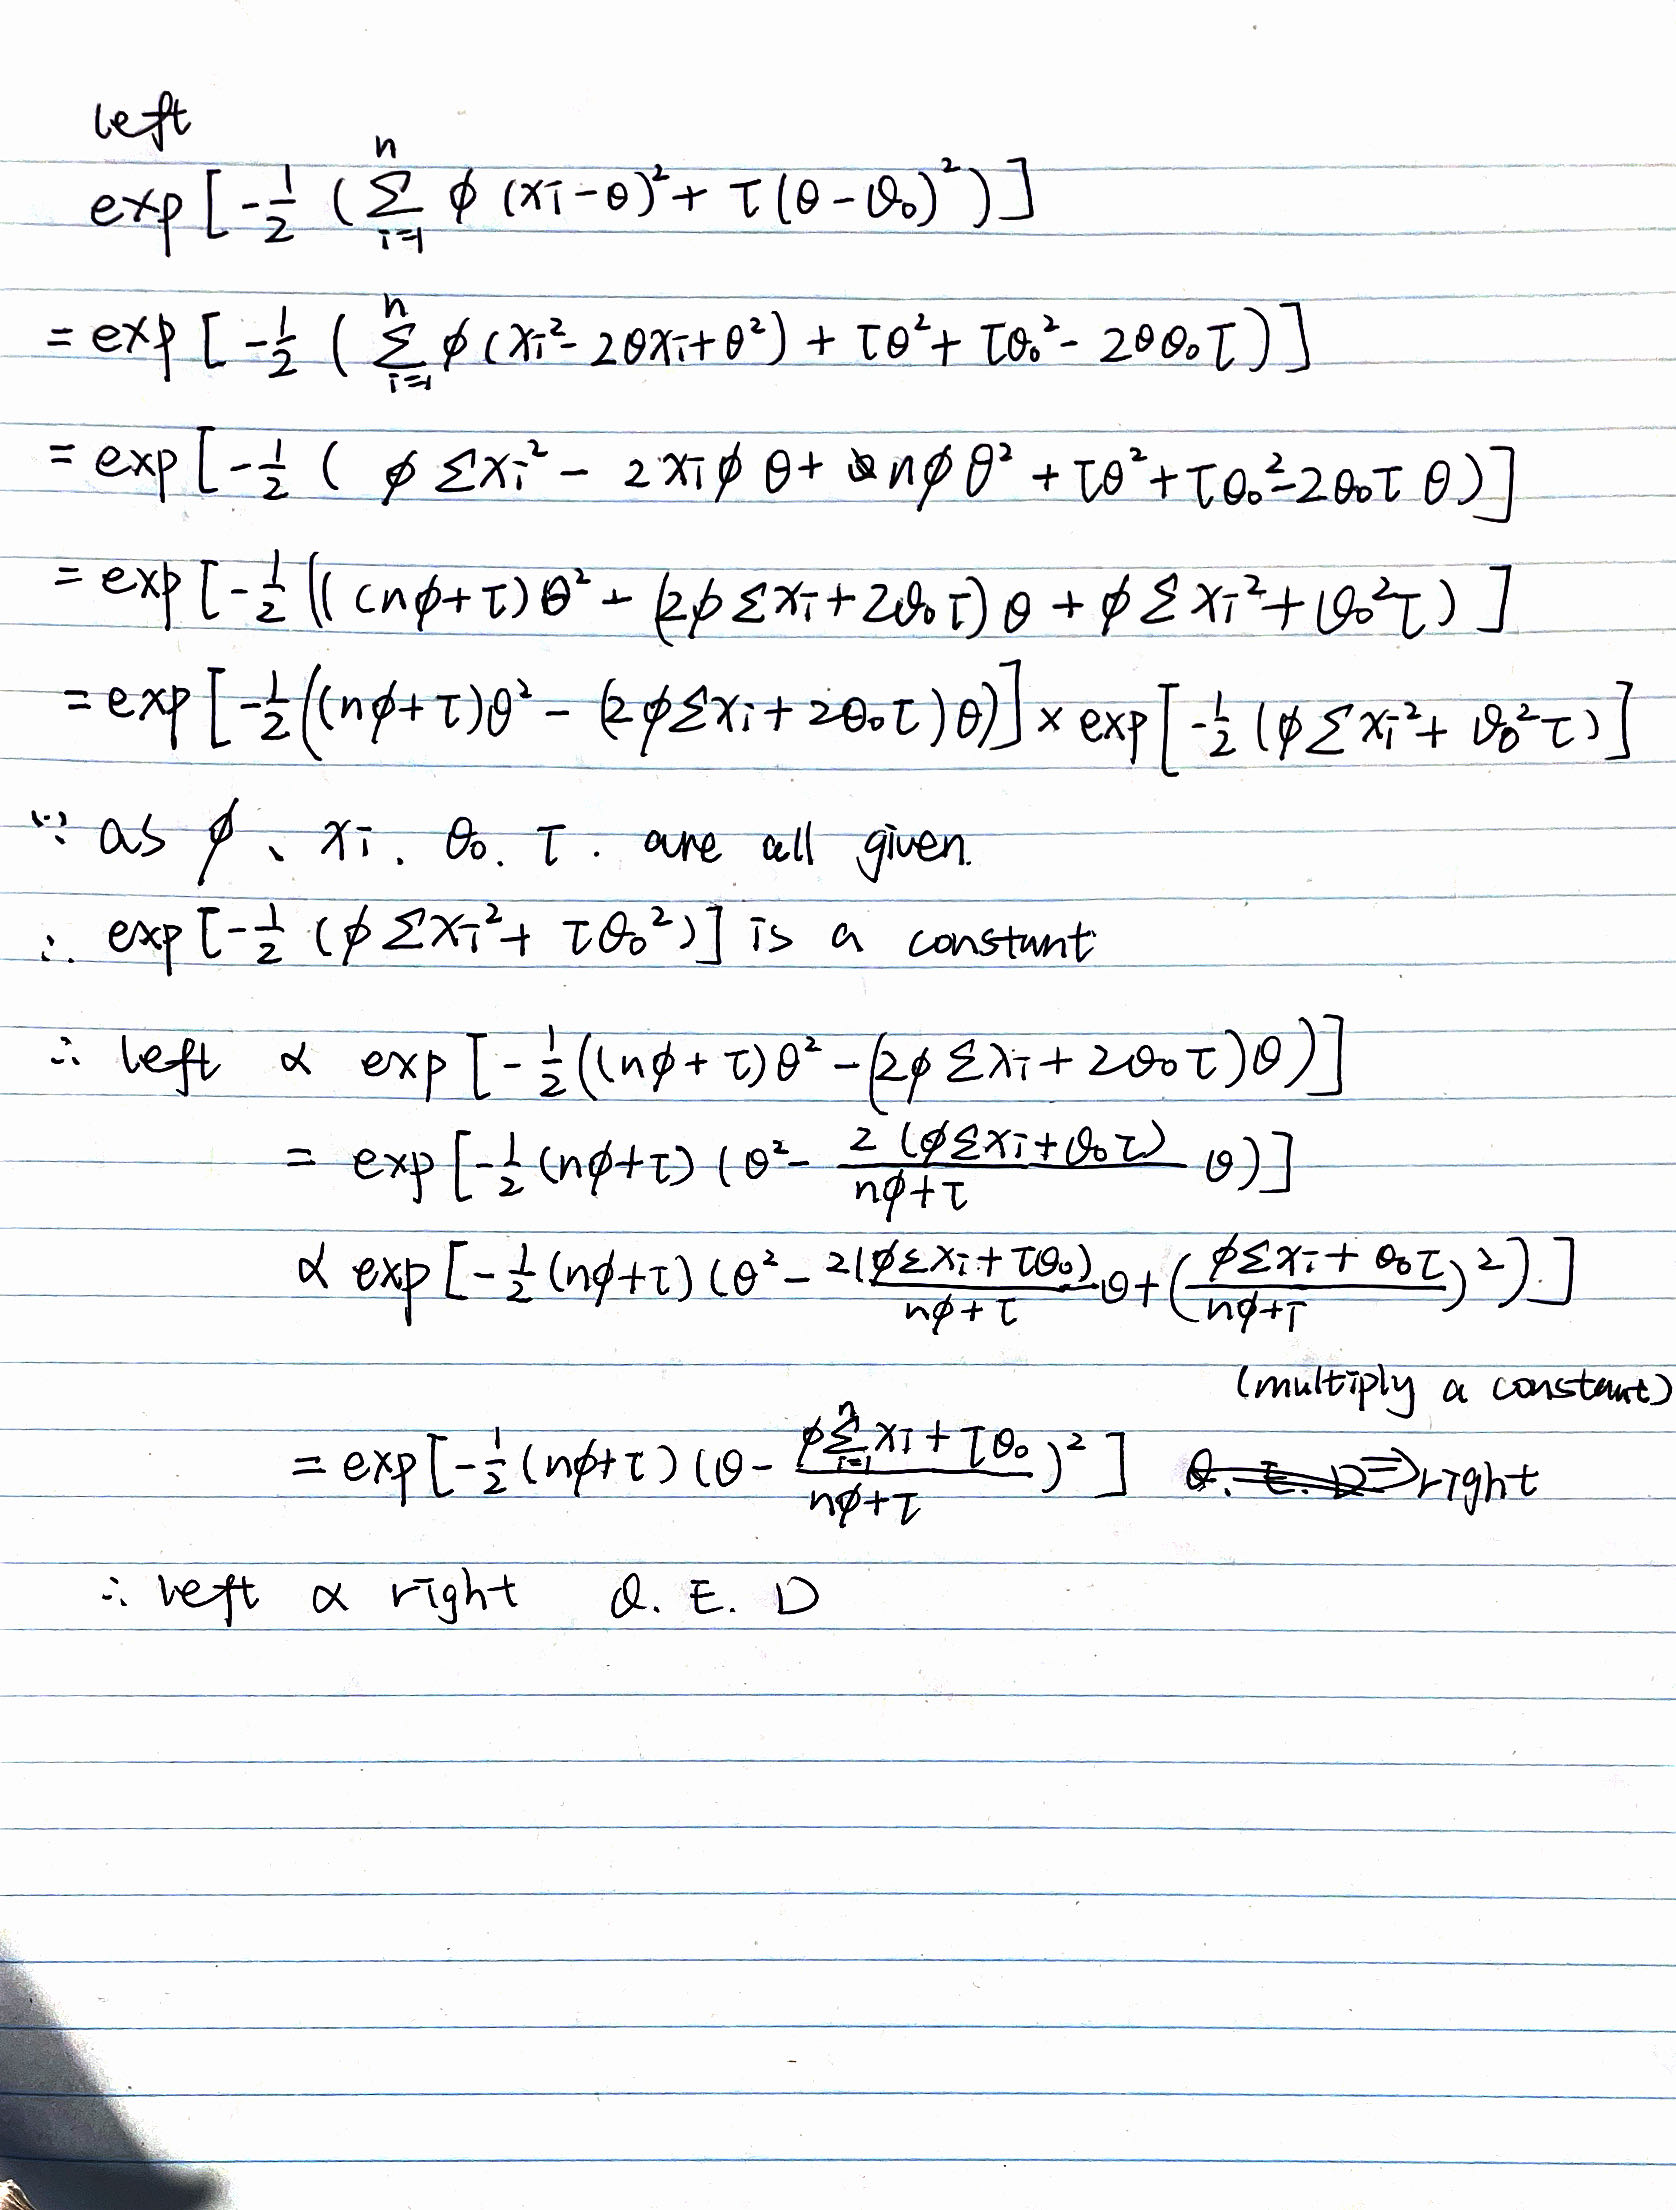 left
exp[-1/2 (∑_{i=1}^{n} φ (xi-θ)²+ τ(θ-θ₀)²)]
= exp[-1/2 (∑_{i=1}^{n} φ(xi²-2θxi+θ²)+τθ²+τθ₀²-2θθ₀τ)]
= exp[-1/2 ( φ∑xi² - 2xiφθ+ nφθ²+τθ²+τθ₀²-2θ₀τθ)]
= exp[-1/2 ((nφ+τ)θ² - (2φ∑xi+2θ₀τ)θ+φ∑xi²+θ₀²τ)]
= exp[-1/2((nφ+τ)θ² - (2φ∑xi+2θ₀τ)θ)] × exp[-1/2(φ∑xi²+ θ₀²τ)]
∵ as φ、xi. θ₀. τ. are all given.
∴ exp[-1/2 (φ∑xi²+ τθ₀²)] is a constant
∴ left ∝ exp[-1/2((nφ+τ)θ²-(2φ∑xi+2θ₀τ)θ)]
= exp[-1/2(nφ+τ)(θ²- 2(φ∑xi+θ₀τ)/(nφ+τ) θ)]
∝ exp[-1/2(nφ+τ)(θ²- 2(φ∑xi+τθ₀)/(nφ+τ) θ+((φ∑xi+θ₀τ)/(nφ+τ))²).]
(multiply a constant)
= exp[-1/2(nφ+τ)(θ- (φ∑_{i=1}^{n} xi+τθ₀)/(nφ+τ))²] Q. E. D => right
∴ left ∝ right Q. E. D